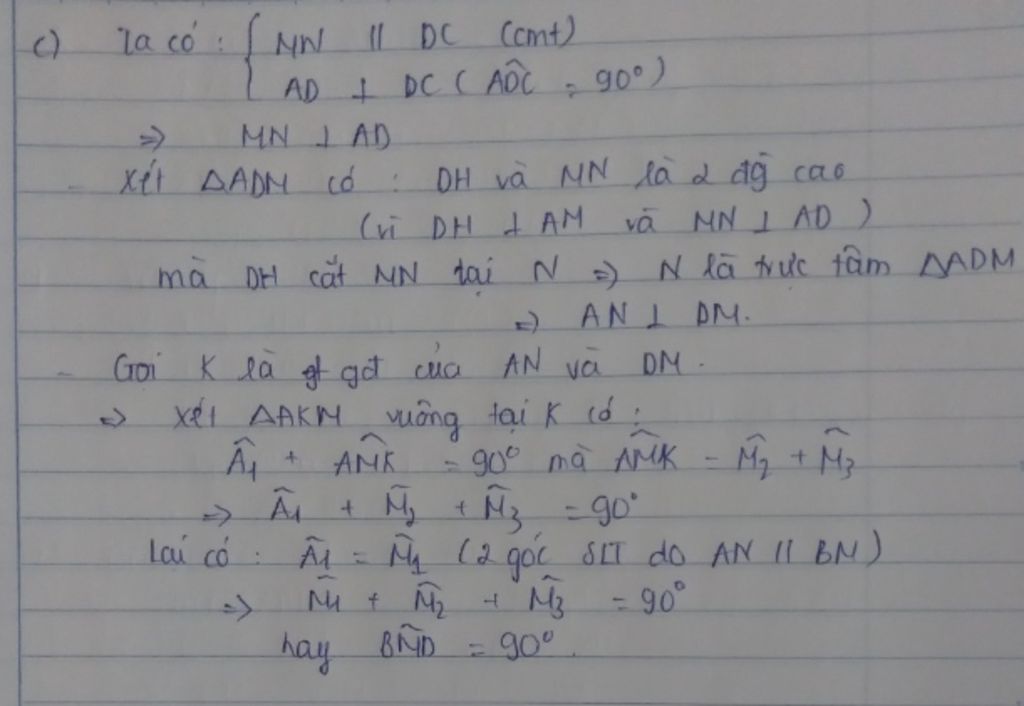 c) Ta có : { MN // DC (cmt)
AD ⊥ DC ( ADC = 90°)
=> MN ⊥ AD
- Xét ΔADM có : DH và MN là 2 đg cao
(vì DH ⊥ AM và MN ⊥ AD )
mà DH cắt MN tại N => N là trực tâm ΔADM
=> AN ⊥ DM.
- Gọi K là gđ của AN và DM .
=> Xét ΔAKM vuông tại K có :
Â₁ + AM̂K = 90° mà AM̂K = M̂₂ + M̂₃
=> Â₁ + M̂₂ + M̂₃ = 90°
Lại có : Â₁ = M̂₁ (2 góc SLT do AN // BM)
=> M̂₁ + M̂₂ + M̂₃ = 90°
hay BM̂D = 90° .